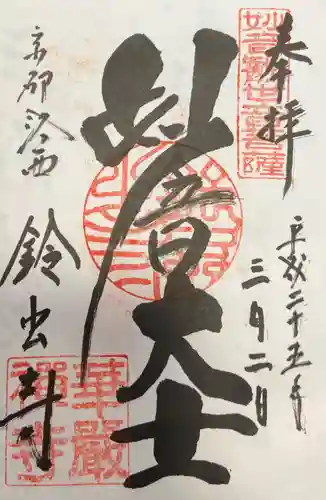 奉拝
妙音観世音菩薩
平成二十五年
三月二日
妙音大士
京都洛西
鈴虫寺
華厳禅寺